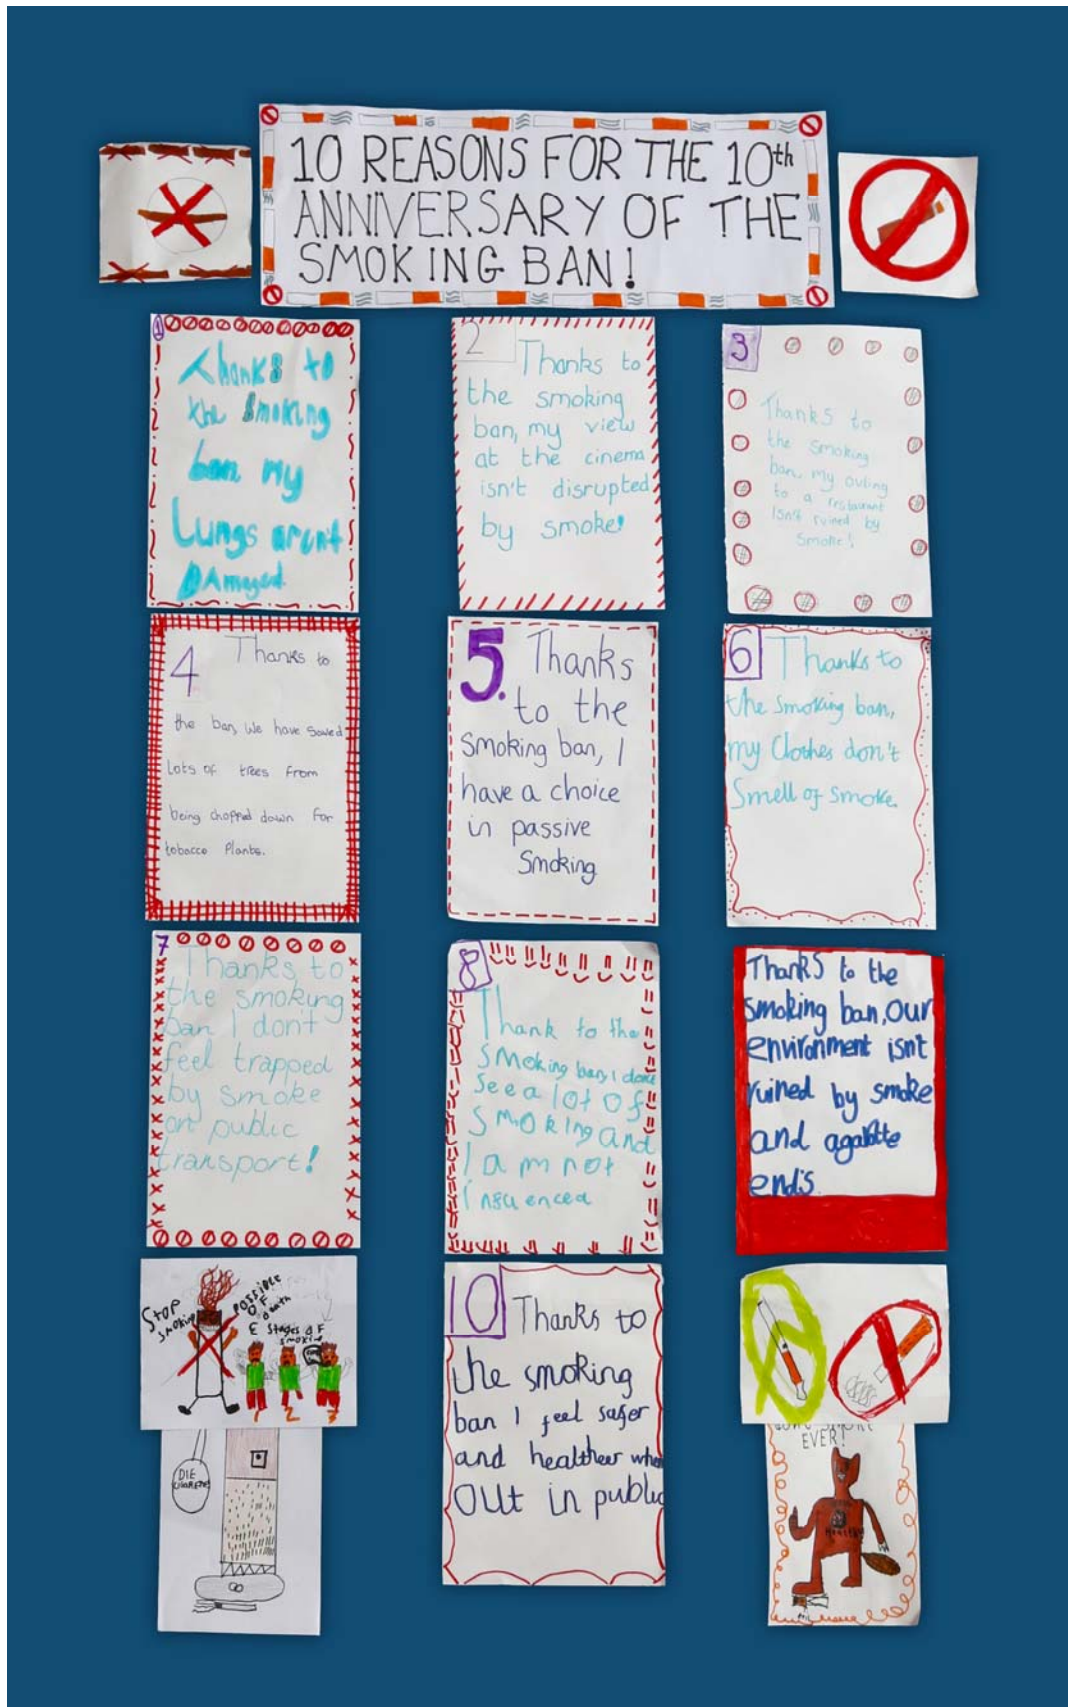 10 REASONS FOR THE 10th
ANNIVERSARY OF THE
SMOKING BAN!
1
Thanks to
the Smoking
ban my
Lungs arent
DAmaged.
2
Thanks to
the smoking
ban, my view
at the cinema
isn't disrupted
by smoke!
3
Thanks to
the smoking
ban, my outing
to a restaurant
isn't ruined by
smoke!
4
Thanks to
the ban, We have saved
Lots of trees from
being chopped down for
tobacco Plants.
5. Thanks
to the
smoking ban, I
have a choice
in passive
Smoking
6 Thanks to
the smoking ban,
my Clothes don't
Smell of smoke.
7
Thanks to
the smoking
ban I don't
feel trapped
by smoke
on public
transport!
8
Thank to the
smoking ban, I dont
see a lot of
smoking and
I am not
Thanks to the
smoking ban, our
environment isn't
ruined by smoke
and
ends.
STOP
smoking
POSSIBLE
OF
death
Stages OF
smoking
1 2 3
DIE
10 Thanks to
the smoking
ban I feel safer
and healtheer when
out in public
EVER!
Healthy